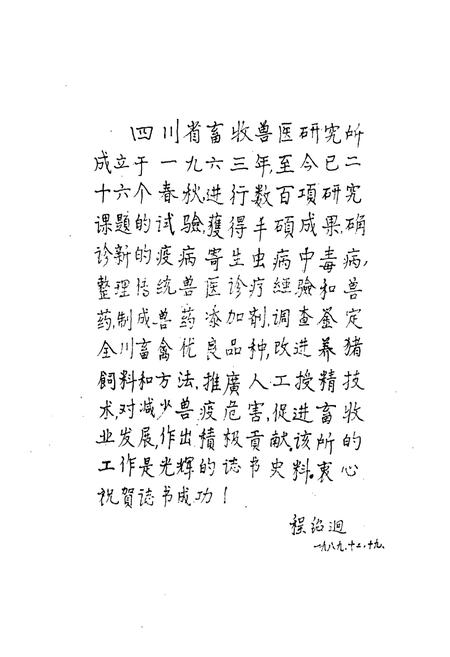 四川省畜牧兽医研究所
成立于一九六三年,至今已二
十六个春秋,进行数百项研究
课题的试验,獲得丰碩成果.确
诊新的疫病寄生虫病中毒病,
整理传统兽医诊疗經驗和兽
药,制成兽药添加剂,调查鉴定
全川畜禽优良品种,改进养猪
飼料和方法,推廣人工授精技
术.对减少兽疫危害,促进畜牧
业发展,作出積极貢献.该所的
工作是光辉的誌书史料.衷心
祝賀誌书成功!
程绍迥
一九八九.十二.十九.